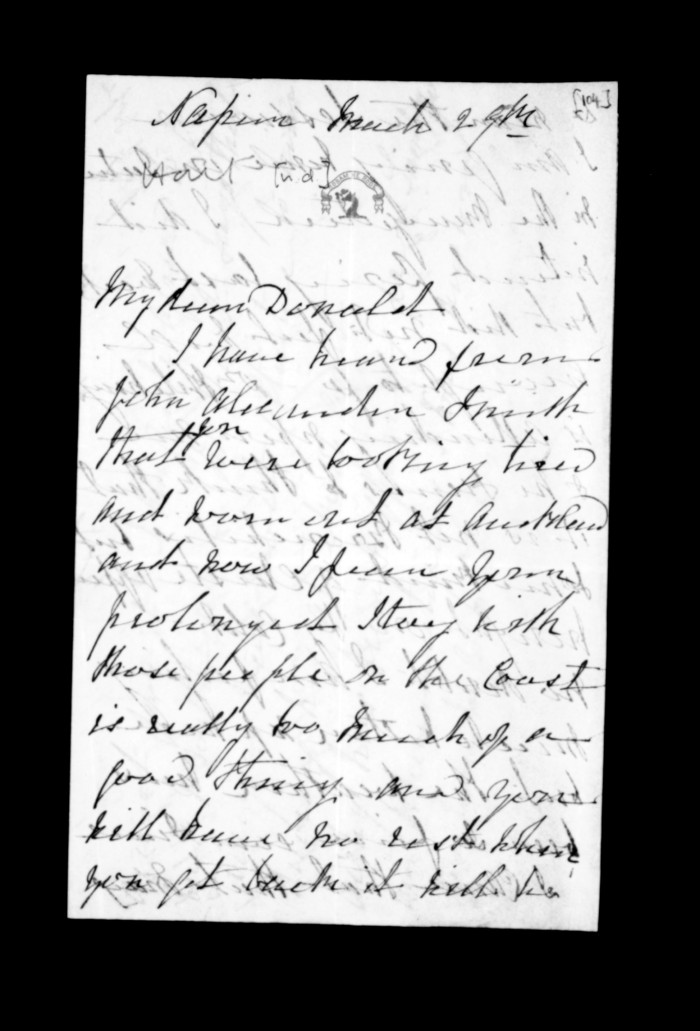 [104]
Napier March 29th
Hall [n.d.]
My dear Donald
I have heard from
John Alexander Smith
that you were looking tired
and worn out at Auckland
and now I fear your
prolonged stay with
those people on the Coast
is really too much of a
good thing and you
will have no rest when
you get back it will be